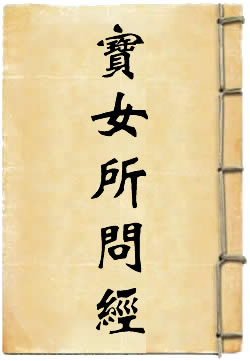 寶女所問經